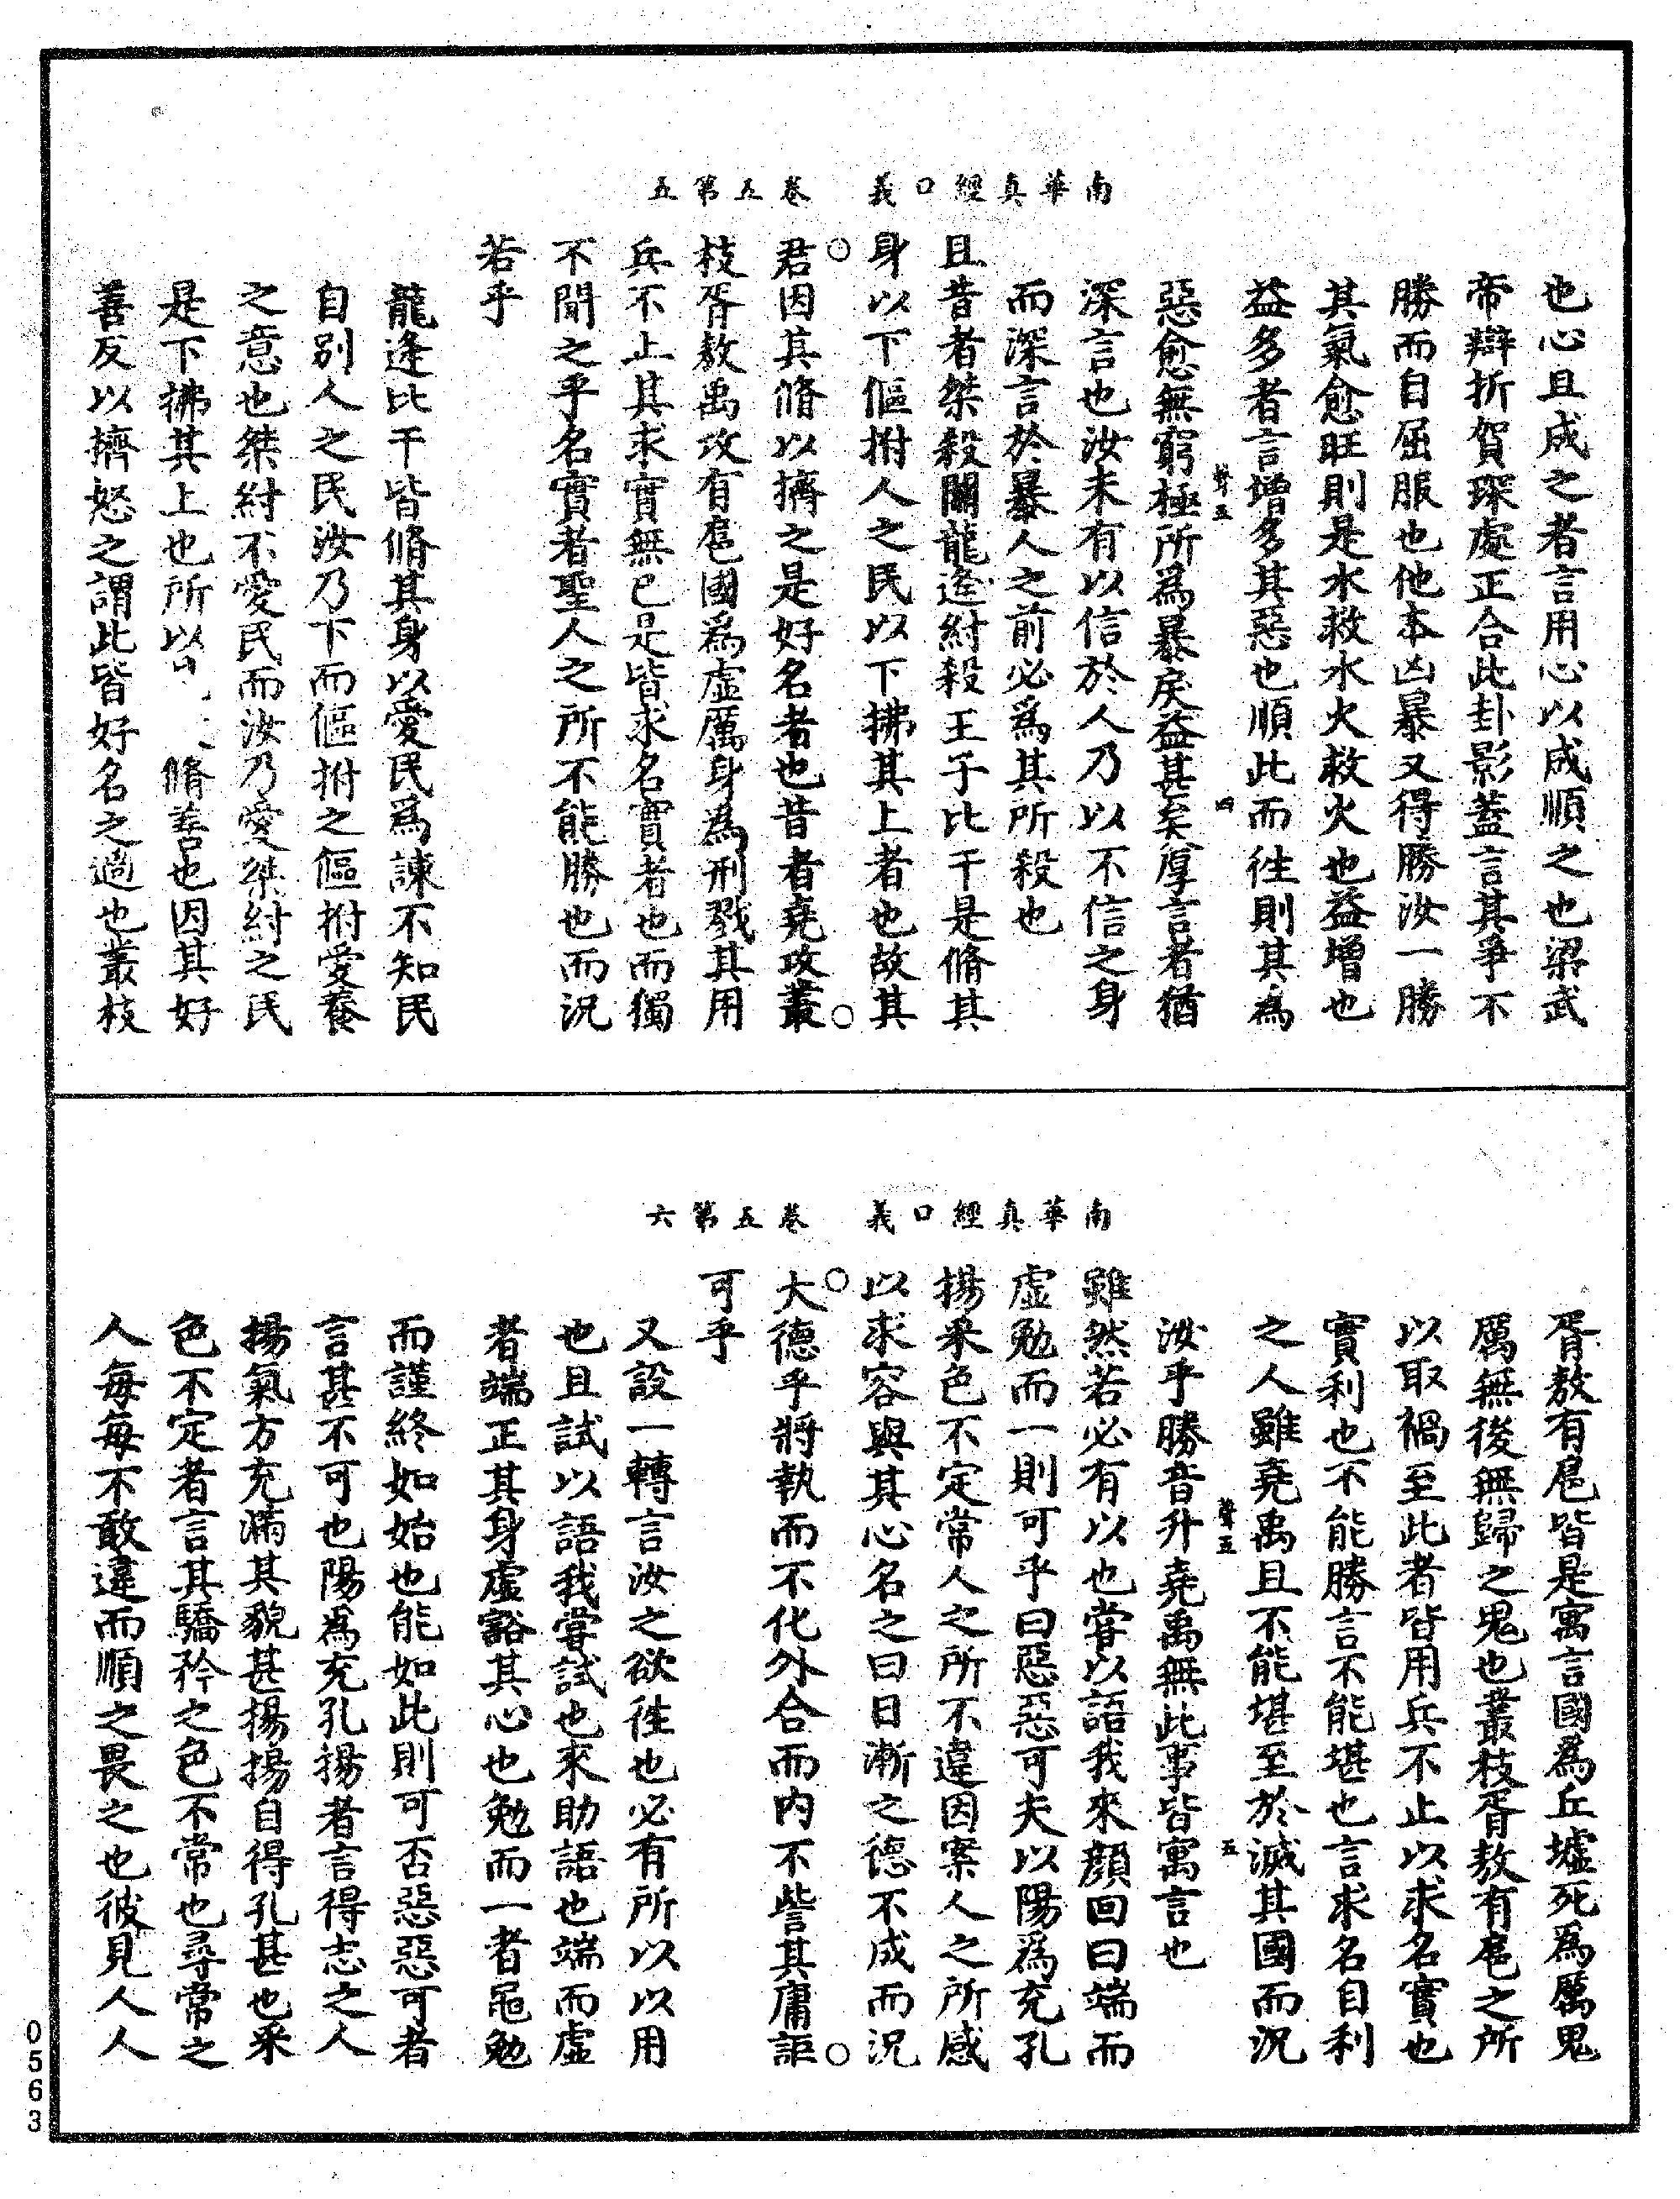 南華真經口義　卷五第五
也心且成之者言用心以成順之也梁武
帝辯折賀琛處正合此卦影蓋言其爭不
勝而自屈服也他本凶暴又得勝汝一勝
其氣愈旺則是水救水火救火也益增也
益多者言增多其惡也順此而徃則其為
聲五　四
惡愈無窮極所為暴戾益甚矣厚言者猶
深言也汝未有以信於人乃以不信之身
而深言於暴人之前必為其所殺也
且昔者桀殺關龍逄紂殺王子比干是脩其
身以下傴拊人之民以下拂其上者也故其
君因其脩以擠之是好名者也昔者堯攻叢
枝胥敖禹攻有扈國為虛厲身為刑戮其用
兵不止其求實無已是皆求名實者也而獨
不聞之乎名實者聖人之所不能勝也而況
若乎
龍逄比干皆脩其身以愛民為諫不知民
自別人之民汝乃下而傴拊之傴拊愛養
之意也桀紂不愛民而汝乃愛桀紂之民
是下拂其上也所以脩善也因其好
善反以擠怒之謂此皆好名之過也叢枝
南華真經口義　卷五第六
胥敖有扈皆是寓言國為丘墟死為厲鬼
厲無後無歸之鬼也叢枝胥敖有扈之所
以取禍至此者皆用兵不止以求名實也
實利也不能勝言不能堪也言求名自利
之人雖堯禹且不能堪至於滅其國而況
聲五　五
汝乎勝音升堯禹無此事皆寓言也
雖然若必有以也嘗以語我來顏回曰端而
虛勉而一則可乎曰惡惡可夫以陽為充孔
揚采色不定常人之所不違因案人之所感
以求容與其心名之曰日漸之德不成而況
大德乎將執而不化外合而內不訾其庸詎
可乎
又設一轉言汝之欲徃也必有所以以用
也且試以語我嘗試也來助語也端而虛
者端正其身虛豁其心也勉而一者黽勉
而謹終如始也能如此則可否惡惡可者
言甚不可也陽為充孔揚者言得志之人
揚氣方充滿其貌甚揚揚自得孔甚也采
色不定者言其驕矜之色不常也尋常之
人每每不敢違而順之畏之也彼見人人
0563